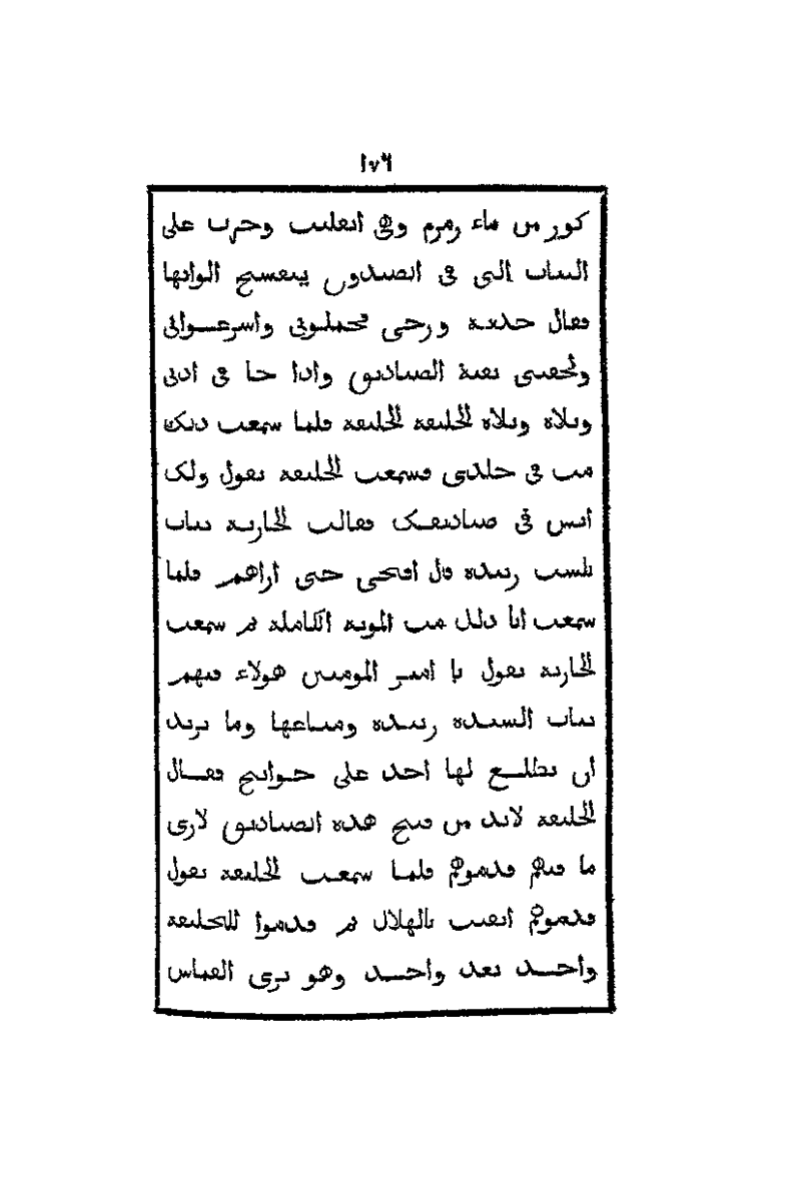 ١٧٦
كوز من ماء زمزم وهي انقلبت وخربت على
الثياب التي في الصندوق يتفسخ الوانها
فقال خذيعة وروحي فحملوني واسرعوا بي
ولحقتني بقية الصناديق واذا جا في اذني
ويلاه ويلاه الخليفة الخليفة فلما سمعت ذلك
مت في جلدي فسمعت الخليفة يقول ولك
ايش في صناديقك فقالت الجارية ثياب
للست زبيدة قال افتحي حتى اراهم فلما
سمعت انا ذلك مت الموتة الكاملة ثم سمعت
الجارية تقول يا امير المومنين هولاء فيهم
ثياب السيدة زبيدة ومتاعها وما تريد
ان يطلع لها احد على حوايج فقال
الخليفة لابد من فتح هذه الصناديق لارى
ما فيهم قدموهم فلما سمعت الخليفة يقول
قدموهم ايقنت بالهلاك ثم قدموا للخليفة
واحد بعد واحد وهو يرى القماش